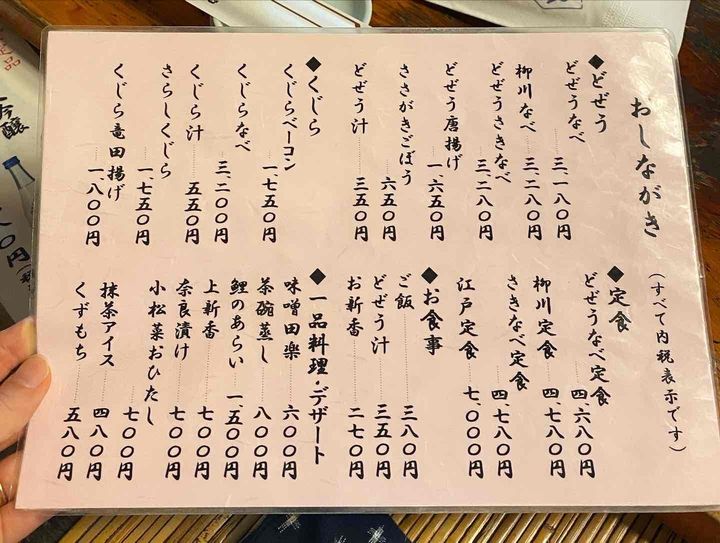 おしながき
(すべて内税表示です)
◆どぜう
どぜうなべ 三、一八〇円
柳川なべ 三、二八〇円
どぜうさきなべ 三、二八〇円
どぜう唐揚げ 一、六五〇円
ささがきごぼう 六五〇円
どぜう汁 三五〇円
◆くじら
くじらベーコン 一、七五〇円
くじらなべ 三、二〇〇円
くじら汁 五五〇円
さらしくじら 一、七五〇円
くじら竜田揚げ 一、八〇〇円
◆定食
どぜうなべ定食 四、六八〇円
柳川定食 四、七八〇円
さきなべ定食 四、七八〇円
江戸定食 七、〇〇〇円
◆お食事
ご飯 三八〇円
どぜう汁 三五〇円
お新香 二七〇円
◆一品料理・デザート
味噌田楽 六〇〇円
茶碗蒸し 八〇〇円
鯉のあらい 一、五〇〇円
上新香 七〇〇円
奈良漬け 七〇〇円
小松菜おひたし 七〇〇円
抹茶アイス 四八〇円
くずもち 五八〇円
吟醸